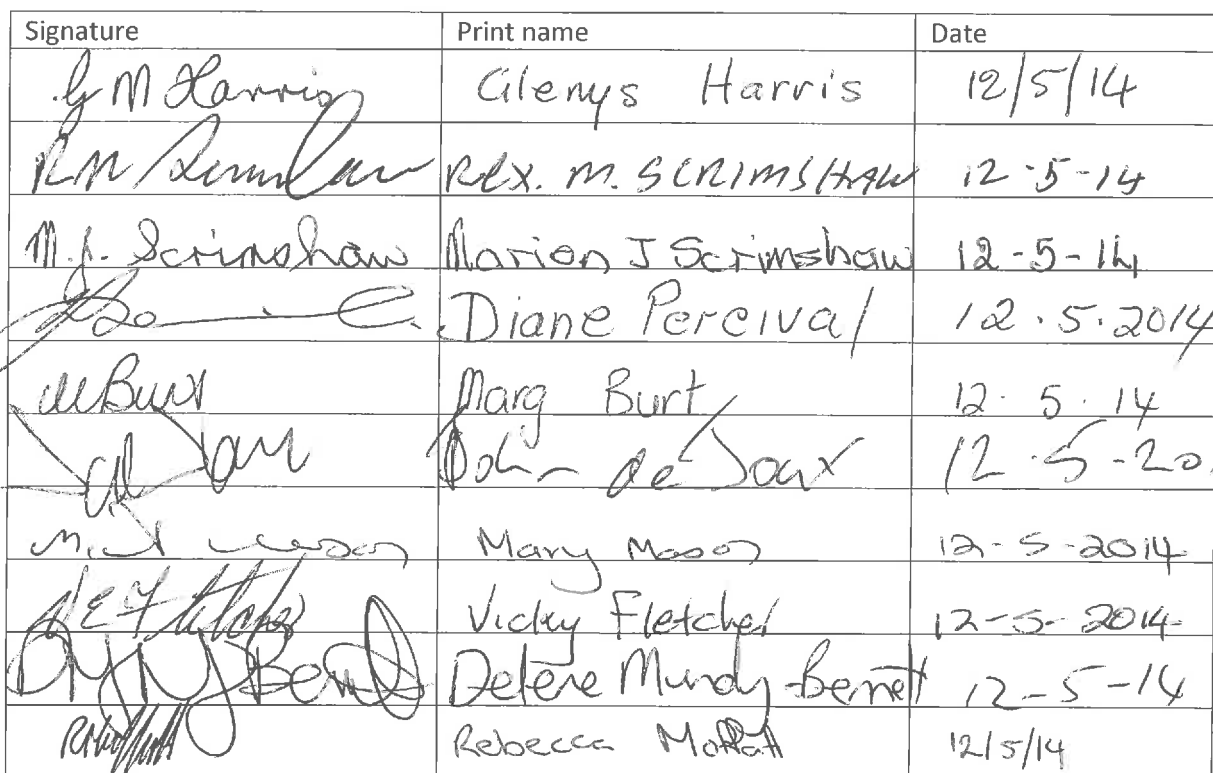 Signature Print name Date
G M Harris Glenys Harris 12/5/14
RM Scrimshaw Rex. M. SCRIMSHAW 12-5-14
M.J. Scrimshaw Marion J Scrimshaw 12-5-14
Diane Percival 12.5.2014
Burt Marg Burt 12.5.14
John de Joux 12-5-20
Mason Mary Mason 12-5-2014
Fletcher Vicky Fletcher 12-5-2014
Mundy-Bennet 12-5-14
Rebecca Moffatt 12/5/14